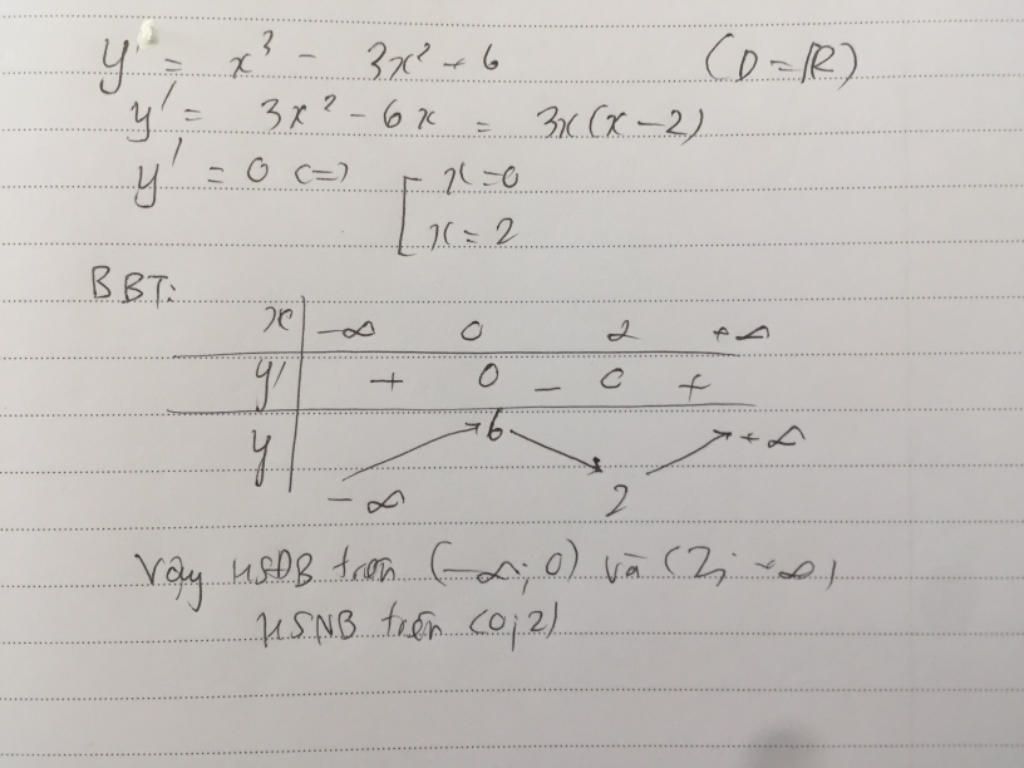 y = x³ - 3x² + 6 (D = ℝ)
y' = 3x² - 6x = 3x(x-2)
y' = 0 <=> [ x=0
x = 2
BBT:
x -∞ 0 2 +∞
y' + 0 - 0 +
y 6 +∞
-∞ 2
Vậy HSĐB trên (-∞; 0) và (2; +∞)
HSNB trên (0; 2)